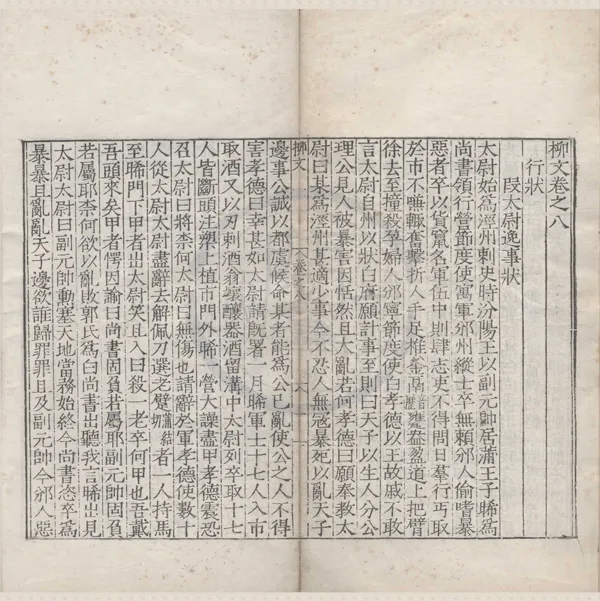 柳文卷之八
行狀
段太尉逸事狀
太尉始爲涇州刺史時汾陽王以副元帥居蒲王子晞爲
尚書領行營節度使寓軍邠州縱士卒無賴邠人偷嗜暴
惡者卒以貨竄名軍伍中則肆志吏不得問日羣行丐取
於市不嗛輒奮擊折人手足椎釜鬲甕盎盈道上把臂
徐去至撞殺孕婦人邠寧節度使白孝德以王故戚不敢
言太尉自州以狀白府願計事至則曰天子以生人分公
理公見人被暴害因恬然且大亂若何孝德曰願奉教太
尉曰某爲涇州甚適少事今不忍人無寇暴死以亂天子
邊事公誠以都虞候命某者能爲公已亂使公之人不得
柳文 卷之八 一
害孝德曰幸甚如太尉請旣署一月晞軍士十七人入市
取酒又以刃刺酒翁壞釀器酒留溝中太尉列卒取十七
人皆斷頭注槊上植市門外晞一營大譟盡甲孝德震恐
召太尉曰將柰何太尉曰無傷也請辭於軍孝德使數十
人從太尉太尉盡辭去解佩刀選老躄者一人持馬
至晞門下甲者出太尉笑且入曰殺一老卒何甲也吾戴
吾頭來矣甲者愕因諭曰尚書固負若屬耶副元帥固負
若屬耶柰何欲以亂敗郭氏爲白尚書出聽我言晞出見
太尉太尉曰副元帥勳塞天地當務始終今尚書恣卒爲
暴暴且亂亂天子邊欲誰歸罪罪且及副元帥今邠人惡